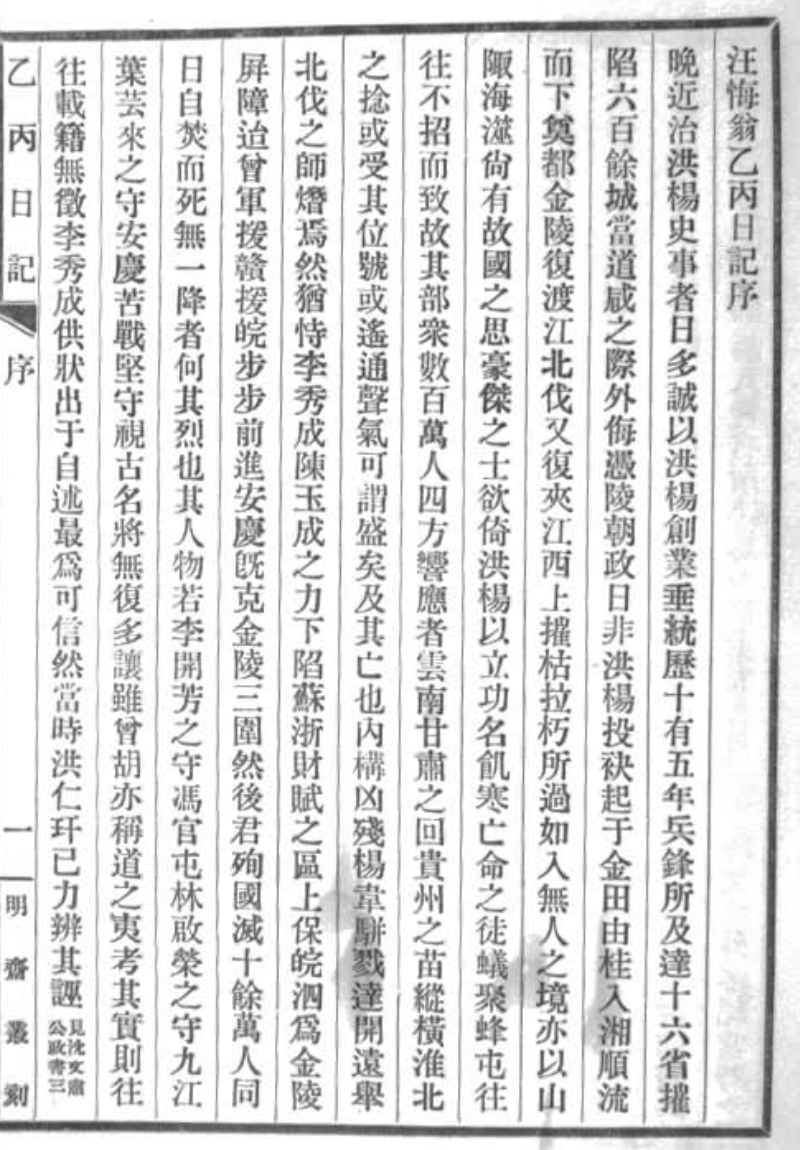 汪悔翁乙丙日記序
晚近治洪楊史事者日多誠以洪楊創業垂統歷十有五年兵鋒所及達十六省摧
陷六百餘城當道咸之際外侮憑陵朝政日非洪楊投袂起于金田由桂入湘順流
而下奠都金陵復渡江北伐又復夾江西上摧枯拉朽所過如入無人之境亦以山
陬海澨尙有故國之思豪傑之士欲倚洪楊以立功名飢寒亡命之徒蟻聚蜂屯往
往不招而致故其部衆數百萬人四方響應者雲南甘肅之回貴州之苗縱橫淮北
之捻或受其位號或遙通聲氣可謂盛矣及其亡也內構凶殘楊韋駢戮達開遠舉
北伐之師熸焉然猶恃李秀成陳玉成之力下陷蘇浙財賦之區上保皖泗爲金陵
屛障迨曾軍援贛援皖步步前進安慶旣克金陵三圍然後君殉國滅十餘萬人同
日自焚而死無一降者何其烈也其人物若李開芳之守馮官屯林啟榮之守九江
葉芸來之守安慶苦戰堅守視古名將無復多讓雖曾胡亦稱道之夷考其實則往
往載籍無徵李秀成供狀出于自述最爲可信然當時洪仁玕已力辨其誣見沈文肅公政書三
乙丙日記 序 一 明齋叢刻